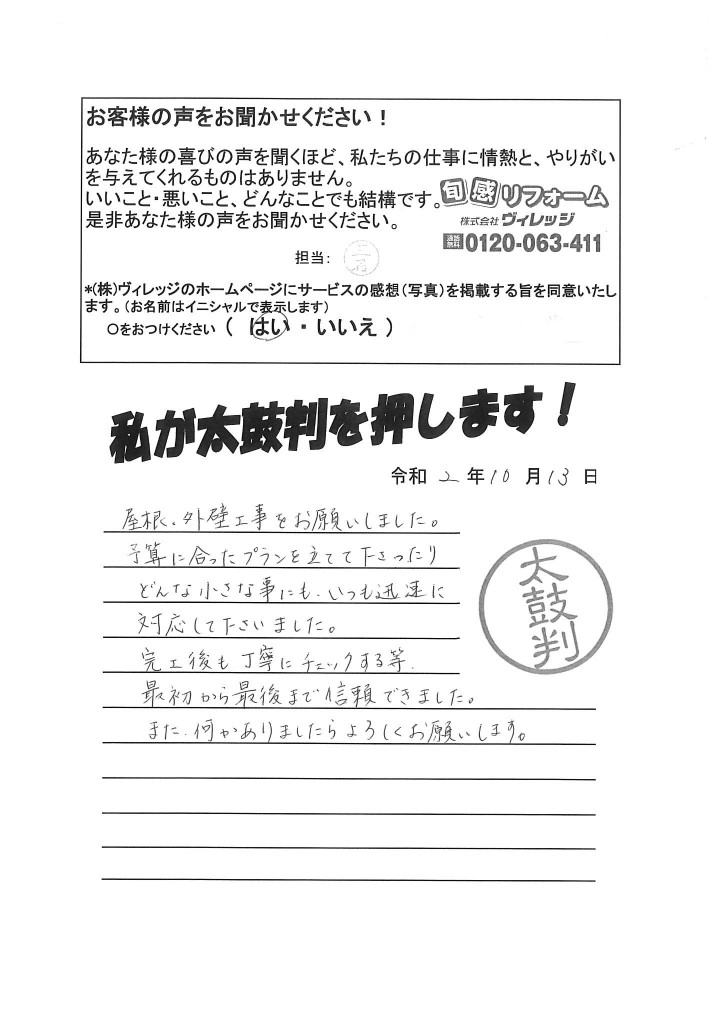 お客様の声をお聞かせください！
あなた様の喜びの声を聞くほど、私たちの仕事に情熱と、やりがい
を与えてくれるものはありません。
いいこと・悪いこと、どんなことでも結構です。
是非あなた様の声をお聞かせください。
旬感リフォーム
株式会社 ヴィレッジ
通話無料 0120-063-411
担当：
*(株)ヴィレッジのホームページにサービスの感想(写真)を掲載する旨を同意いたし
ます。(お名前はイニシャルで表示します)
○をおつけください ( はい ・ いいえ )
私が太鼓判を押します！
令和 2 年 10 月 13 日
屋根、外壁工事をお願いしました。
予算に合ったプランを立てて下さったり
どんな小さな事にも、いつも迅速に
対応して下さいました。
完工後も丁寧にチェックする等、
最初から最後まで信頼できました。
また、何かありましたらよろしくお願いします。
太鼓判